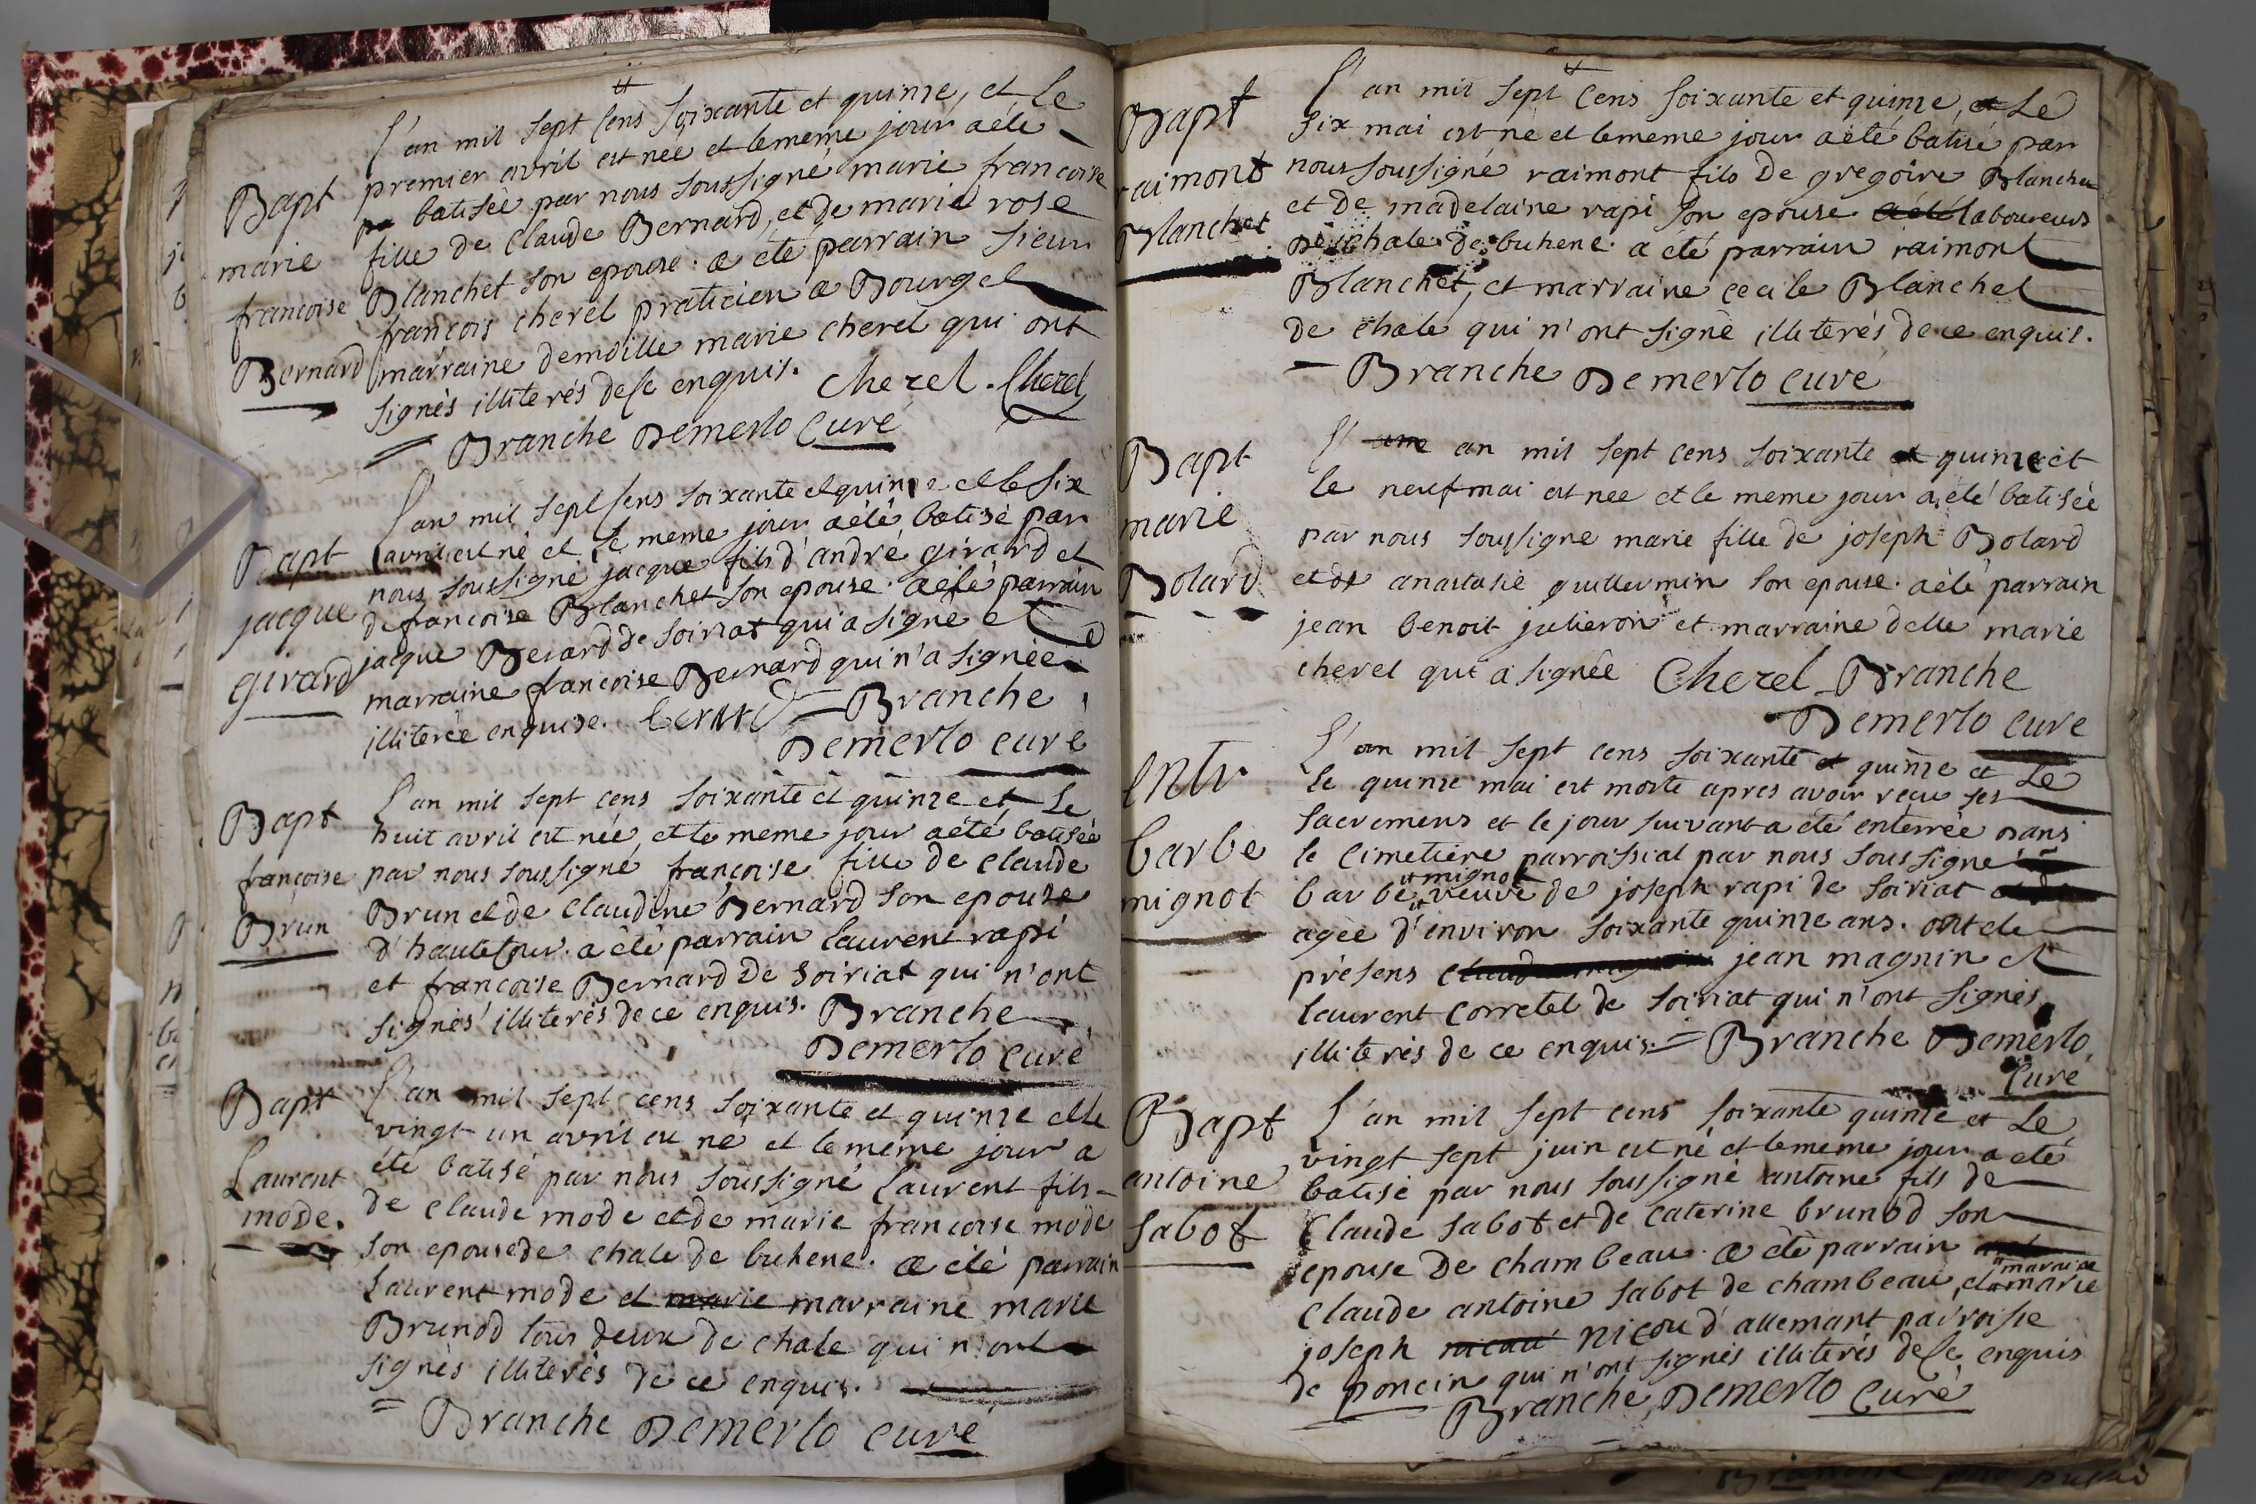 L'an mil sept cens soixante et quinze, et le
premier avril est neé et le meme jour a été
Bapt
batiseé par nous soussigné marie francoise
marie
fille de claude Bernard, et de marie rose
francoise
Blanchet son epouse. a eté parrain sieur
francois cherel praticien a Bourg et
Bernard
marraine demoille marie cherel qui ont
signés illiterés de ce enquis. Cherel. Cherel
= Branche Demerlo Curé
L'an mil sept sens soixante et quinze et le six
Bapt
avril est né et le meme jour a été batisé par
nous soussigné jacque fils d'andré girard et
jacque
de francoise Blanchet son epouse. a eté parrain
jacque Berard de soiriat qui a signé et
girard
marraine francoise Bernard qui n'a signée
illiterée enquise. berard = Branche
Demerlo curé
Bapt
L'an mil sept cens soixante et quinze et le
huit avril est née, et le meme jour a été batisée
françoise
par nous soussigné françoise fille de claude
Brun
Brun et de claudine Bernard son epouse
d'hautecour. a été parrain laurent rapi
et francoise Bernard de soiriat qui n'ont
signés illiterés de ce enquis. Branche
Demerlo curé
Bapt
L'an mil sept cens soixante et quinze et le
vingt un avril est né et le meme jour a
Laurent
été batisé par nous soussigné laurent fils
mode.
de claude mode et de marie francoise mode
son epouse de chale de buhene. a eté parrain
laurent mode et marie marraine marie
Brunod tous deux de chale qui n'ont
signés illiterés de ce enquis.
= Branche Demerlo curé
L'an mil sept cens soixante et quinze, et le
Bapt
six mai est né et le meme jour a eté batisé par
raimont
nous soussigné raimont fils de gregoire Blanchet
Blanchet
et de madelaine rapi son epouse a eté laboureurs
de chale de buhene. a été parrain raimont
Blanchet, et marraine cecile Blanchet
de chale qui n'ont signé illiterés de ce enquis.
Branche Demerlo curé
Bapt
L' an mil sept cens soixante et quinze et
le neuf mai est neé et le meme jour a été batisée
marie
par nous soussigné marie fille de joseph Bolard
Bolard
et de anastasie guillermin son epouse. a été parrain
jean benoit julieron et marraine delle marie
cherel qui a signée Cherel Branche
Demerlo curé
Entr
L'an mil sept cens soixante et quinze et le
le quinze mai est morte apres avoir recu ses
sacremens et le jour suivant a été enterrée dans
barbe
le cimetiere parroissial par nous soussigné
mignot
mignot
barbe veuve de joseph rapi de soiriat et de
agée d'environ soixante quinze ans. ont ete
présens claude magnin jean magnin et
laurent corretel de soiriat qui n'ont signés
illiterés de ce enquis. = Branche Demerlo
Curé
Bapt
L'an mil sept cens soixante quinze et le
vingt sept juin est né, et le meme jour a eté
antoine
batisé par nous soussigné antoine fils de
sabot
claude sabot et de caterine brunod son
epouse de chambeau. a été parrain
marraine
claude antoine sabot de chambeau, et marie
joseph nicou nicou d'allemant parroisse
de poncin qui n'ont signés illiterés de ce enquis
Branche Demerlo Curé